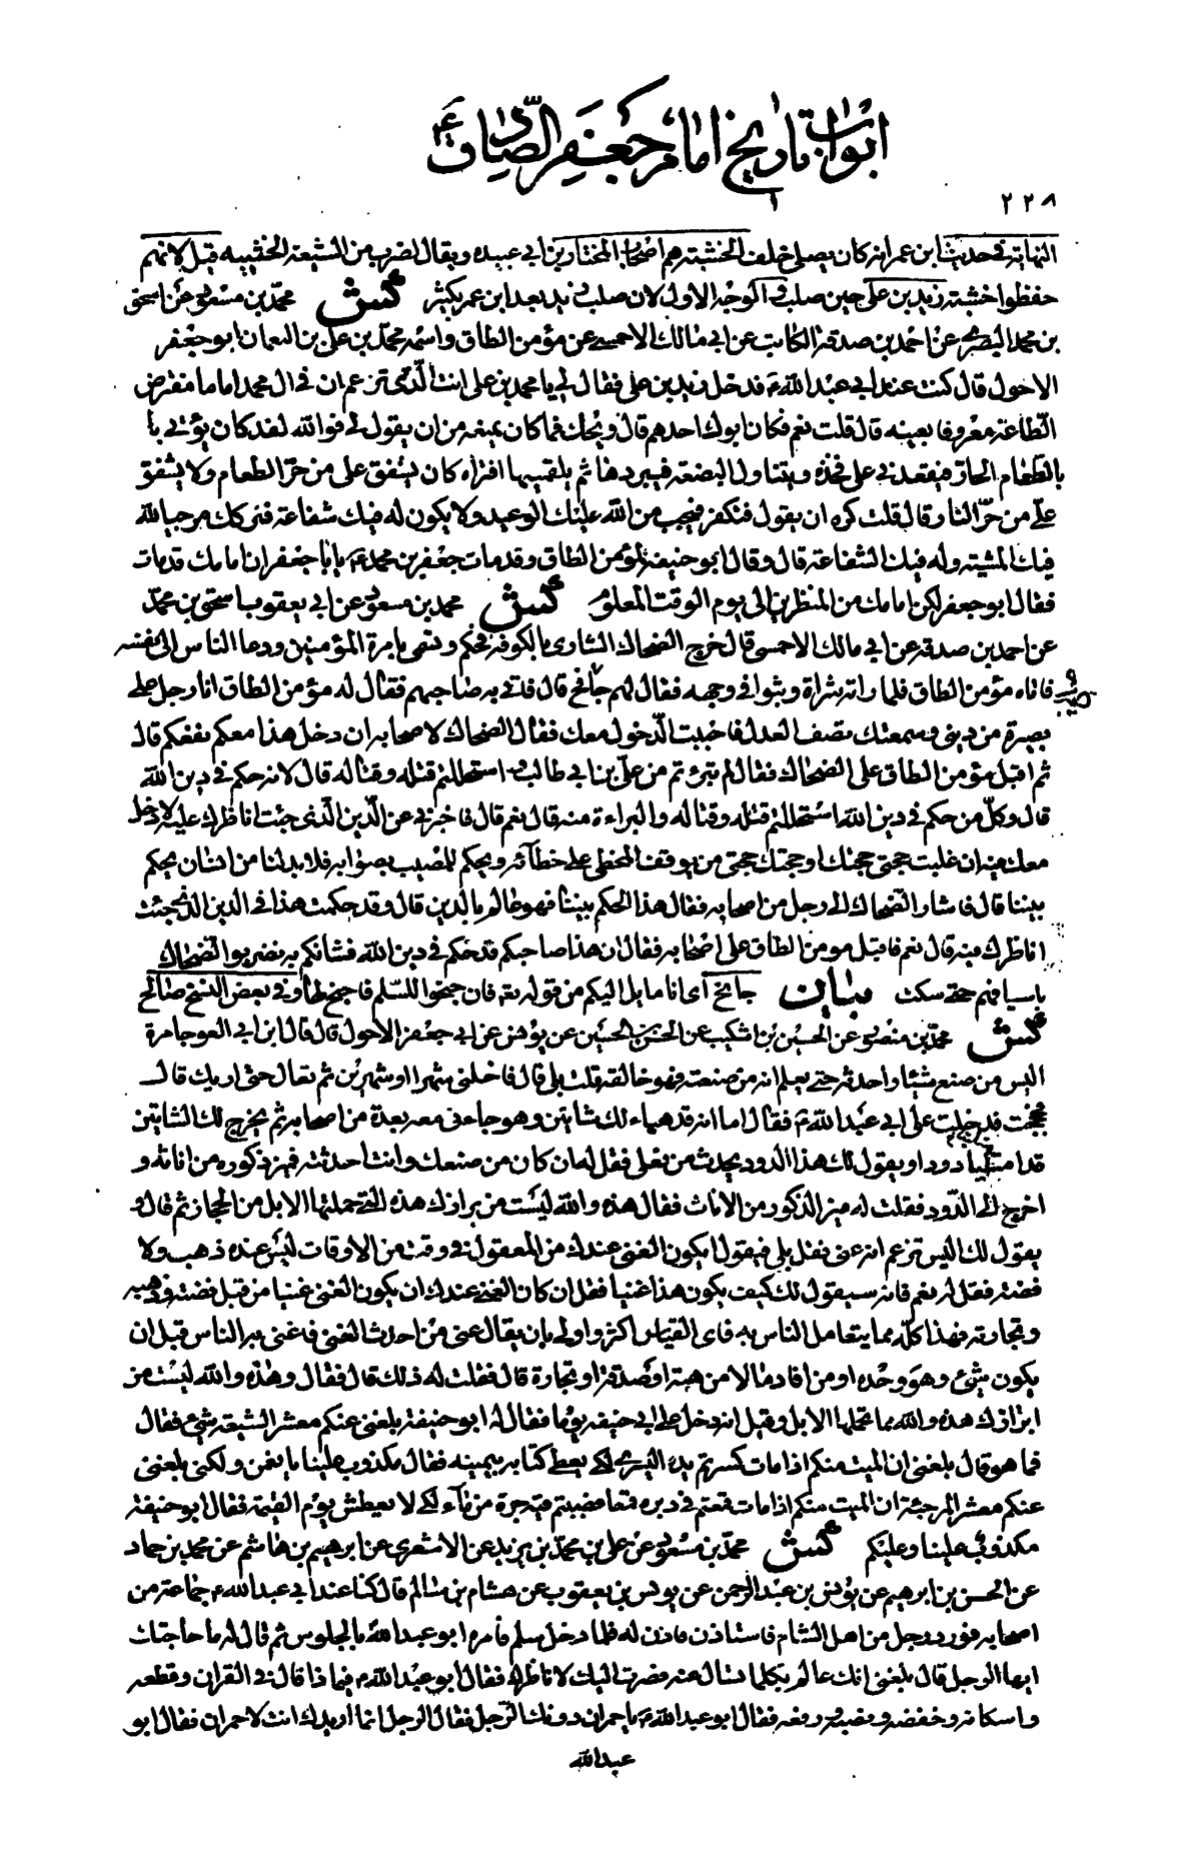 ابواب تاريخ امام جعفر الصادق ع
٢٢٨
النهاية فى حديث ابن عمر انه كان يصلى خلف الخشبية هم اصحاب المختار بن ابي عبيدة ويقال لضرب من الشيعة الخشبيه قيل لانهم
حفظوا خشبة زيد بن على حين صلب و الوجه الاول لان صلب زيد بعد ابن عمر بكثير كش محمد بن مسعود عن اسحق
بن محمد البصرى عن احمد بن صدقة الكاتب عن ابي مالك الاحمسى عن مؤمن الطاق واسمه محمد بن على بن النعمان ابو جعفر
الاحول قال كنت عند ابي عبد الله ع فدخل زيد بن على فقال لى يا محمد بن على انت الذى تزعم ان فى ال محمد اماما مفترض
الطاعة معروفا بعينه قال قلت نعم فكان ابوك احدهم قال ويحك فما كان يمنعه من ان يقول لى فوالله لقد كان يؤتى با
بالطعام الحار فيقعدنى على فخذه ويتناول البضعة فيبردها ثم يلقمنيها افتراه كان يشفق على من حر الطعام ولا يشفق
على من حر النار قال قلت كره ان يقول فتكفر فيجب من الله عليك الوعيد ولا يكون له فيك شفاعة فتركك مرجيا لله
فيك المشية وله فيك الشفاعة قال وقال ابو حنيفة لمؤمن الطاق وقد مات جعفر بن محمد ع يا ابا جعفر ان امامك قد مات
فقال ابو جعفر لكن امامك من المنظرين الى يوم الوقت المعلوم كش محمد بن مسعود عن ابي يعقوب اسحق بن محمد
عن احمد بن صدقة عن ابي مالك الاحمسى قال خرج الضحاك الشارى بالكوفة فحكم وتسمى بامرة المؤمنين ودعا الناس الى نفسه
فاتاه مؤمن الطاق فلما راته شراة وثبوا فى وجهه فقال لهم جانح قال فاتى به صاحبهم فقال له مؤمن الطاق انا رجل على
بصيرة من دينى وسمعتك تصف العدل فاحببت الدخول معك فقال الضحاك لاصحابه ان دخل هذا معكم نفعكم قال
ثم اقبل مؤمن الطاق على الضحاك فقال لم تبرءتم من على بن ابي طالب و استحللتم قتله وقتاله قال لانه حكم فى دين الله
قال وكل من حكم فى دين الله استحللتم قتله وقتاله والبراءة منه قال نعم قال فاخبرنى عن الدين الذى جئت اناظرك عليه لادخل
معك فيه ان غلبت حجتى حجتك او حجتك حجتى من يوقف المخطى على خطائه ويحكم للمصيب بصوابه فلابد لنا من انسان يحكم
بيننا قال فاشار الضحاك الى رجل من اصحابه فقال هذا الحكم بيننا فهو عالم بالدين قال وقد حكمت هذا فى الدين الذى جئت
اناظرك فيه قال نعم فاقبل مومن الطاق على اصحابه فقال ان هذا صاحبكم قد حكم فى دين الله فشانكم به فضربوا الضحاك
باسيافهم حتى سكت بيان جانح اى انا مايل اليكم من قوله تعه فان جنحوا للسلم فاجنح لها وفى بعض النسخ صالح
كش محمد بن عن الحسين بن اشكيب عن الحسن بن الحسين عن يونس عن ابي جعفر الاحول قال قال ابن ابي العوجا مرة
اليس من صنع شيئا واحدثه حتى يعلم انه من صنعته فهو خالقه قلت بلى قال فاخلنى شهرا او شهرين ثم تعال حتى اريك قال
فحججت فدخلت على ابي عبد الله ع فقال اما انه قد هياء لك شاتين وهو جاء معه بعدة من اصحابه ثم يخرج لك الشاتين
قد امتليا دودا ويقول لك هذا الدود يحدث من فعلى فقل له ان كان من صنعك وانت احدثته فميز ذكوره من اناثه و
اخرج الى الدود فقلت له ميز الذكور من الاناث فقال هذه والله ليست من ابرازك هذه التى حملتها الابل من الحجاز ثم قال و
يقول لك اليس تزعم انه غنى فقل بلى فيقول ايكون الغنى عندك من المعقول فى وقت من الاوقات ليس عنده ذهب ولا
فضة فقل له نعم فانه سيقول لك كيف يكون هذا غنيا فقل ان كان الغنى عندك ان يكون الغنى غنيا من قبل فضته وذهبه
وتجارته فهذا كله مما يتعامل الناس به فاى القياس اكثر واولى بان يقال غنى من احدث الغنى فاغنى به الناس قبل ان
يكون شىء وهو وحده او من افاد مالا من هبة او صدقة او تجارة قال فقلت له ذلك قال فقال وهذه والله ليست من
ابرازك هذه والله مما تحملها الابل وقيل انه دخل على ابي حنيفة يوما فقال له ابو حنيفة بلغنى عنكم معشر الشيعة شىء فقال
فما هو قال بلغنى ان الميت منكم اذا مات كسرتم يده اليسرى لكى يعطى كتابه بيمينه فقال مكذوب علينا يا نعمن ولكنى بلغنى
عنكم معشر المرجئة ان الميت منكم اذا مات قمعتم فى دبره قمعا فصببتم فيه جرة من ماء لكى لا يعطش يوم القيمة فقال ابو حنيفة
مكذوب علينا وعليكم كش محمد بن مسعود عن على بن محمد بن يزيد عن الاشعرى عن ابرهيم بن هاشم عن محمد بن حماد
عن الحسن بن ابرهيم عن يونس بن عبد الرحمن عن يونس بن يعقوب عن هشام بن سالم قال كنا عند ابي عبد الله ع جماعة من
اصحابه فورد رجل من اهل الشام فاستاذن فاذن له فلما دخل سلم فامره ابو عبد الله بالجلوس ثم قال له ما حاجتك
ايها الرجل قال بلغنى انك عالم بكل ما تسال عنه فصرت اليك لاناظرك فقال ابو عبد الله ع فيما ذا قال فى القران وقطعه
واسكانه وخفضه ونصبه ورفعه فقال ابو عبد الله ع يا حمران دونك الرجل فقال الرجل انما اريدك انت لا حمران فقال ابو
عبد الله